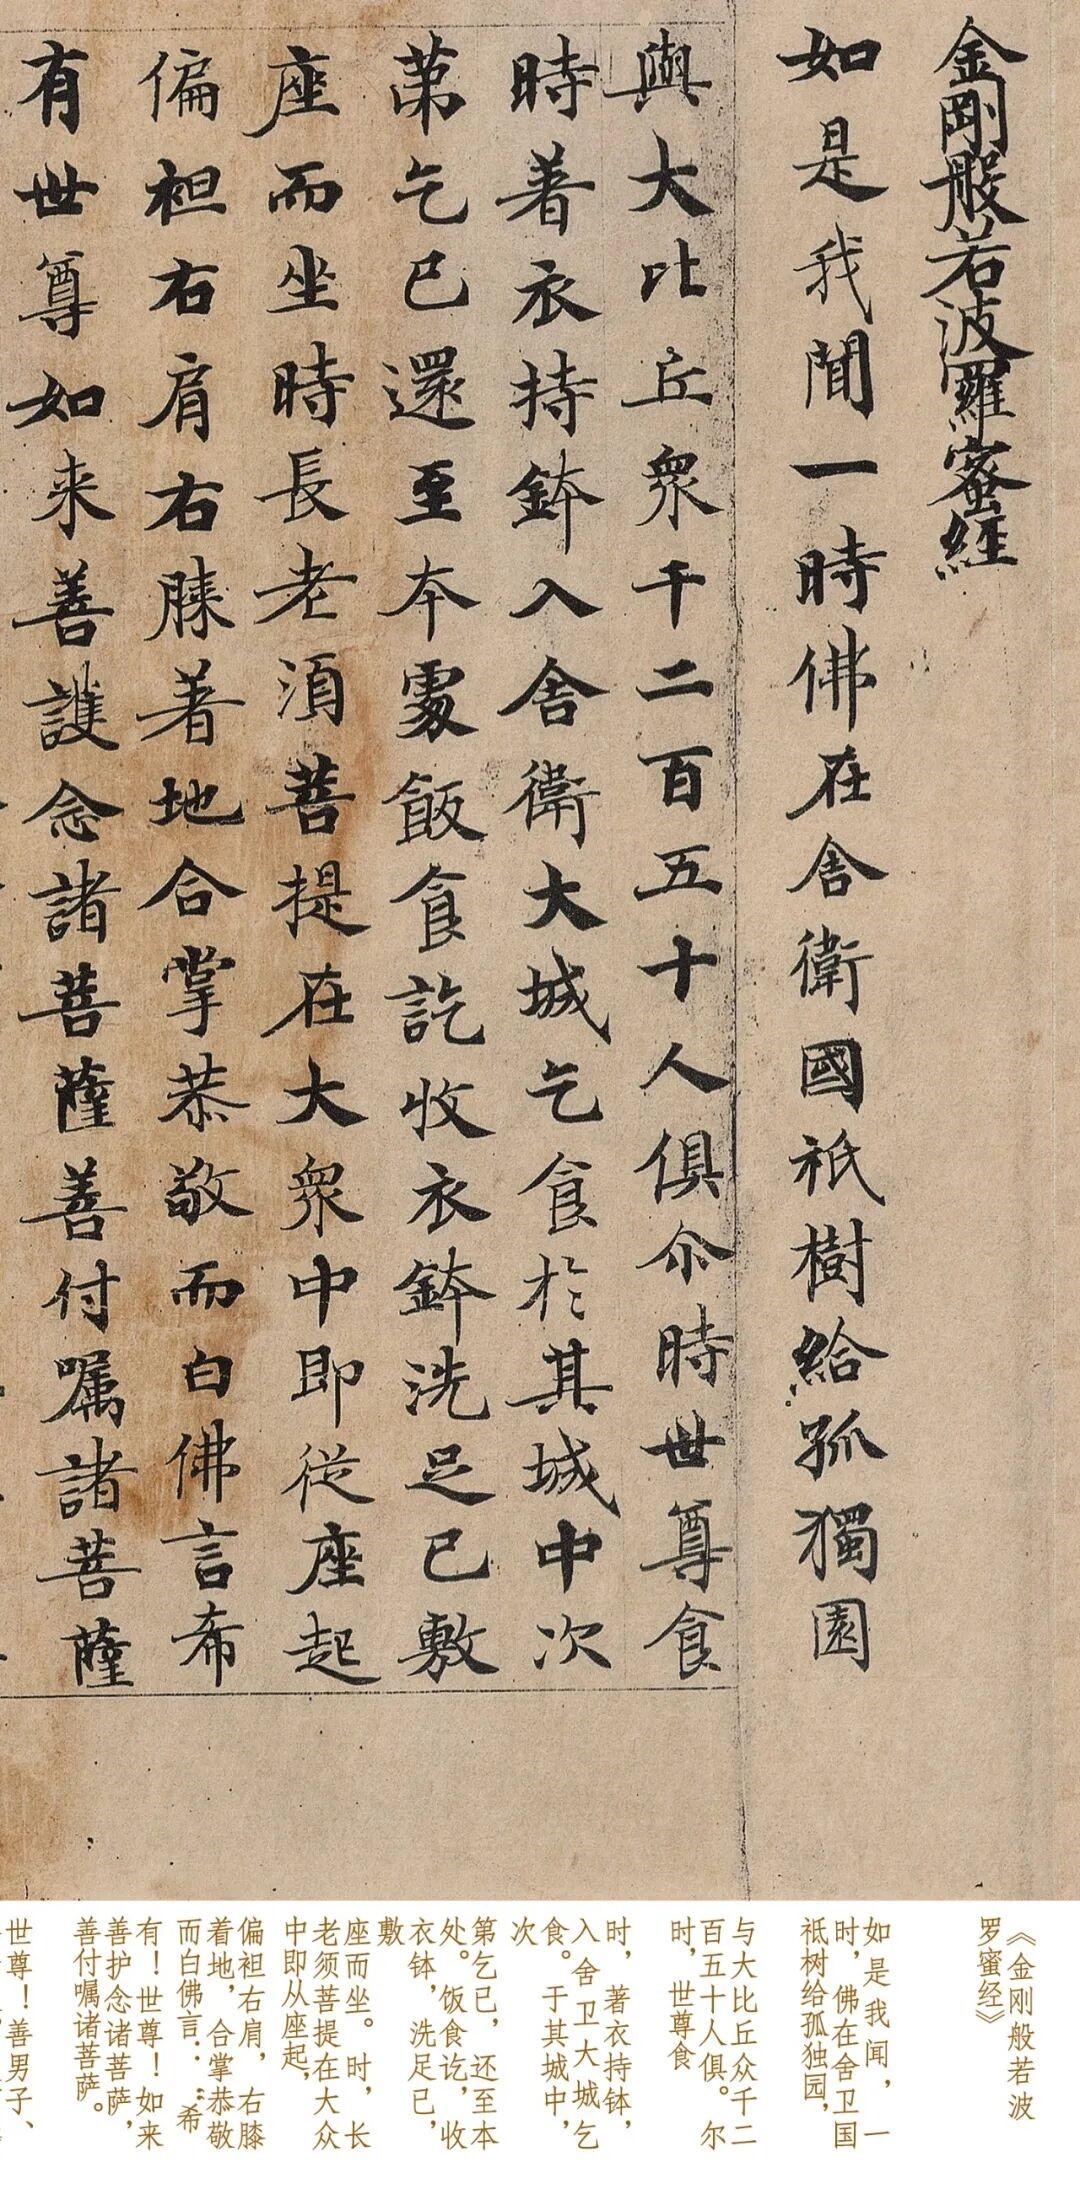 金剛般若波羅蜜經
如是我聞一時佛在舍衛國祇樹給孤獨園
與大比丘衆千二百五十人俱尒時世尊食
時著衣持鉢入舍衛大城乞食於其城中次
第乞已還至本處飯食訖收衣鉢洗足已敷
座而坐時長老須菩提在大衆中即從座起
偏袒右肩右膝著地合掌恭敬而白佛言希
有世尊如来善護念諸菩薩善付嘱諸菩薩
《金刚般若波
罗蜜经》
如是我闻，一
时，佛在舍卫国
祇树给孤独园，
与大比丘众千二
百五十人俱。尔
时，世尊食
时，著衣持钵，
入舍卫大城乞
食。于其城中，
次
第乞已，还至本
处。饭食讫，收
衣钵，洗足已，
敷
座而坐。时，长
老须菩提在大众
中即从座起，
偏袒右肩，右膝
着地，合掌恭敬
而白佛言：“希
有！世尊！如来
善护念诸菩萨，
善付嘱诸菩萨。
世尊！善男子、